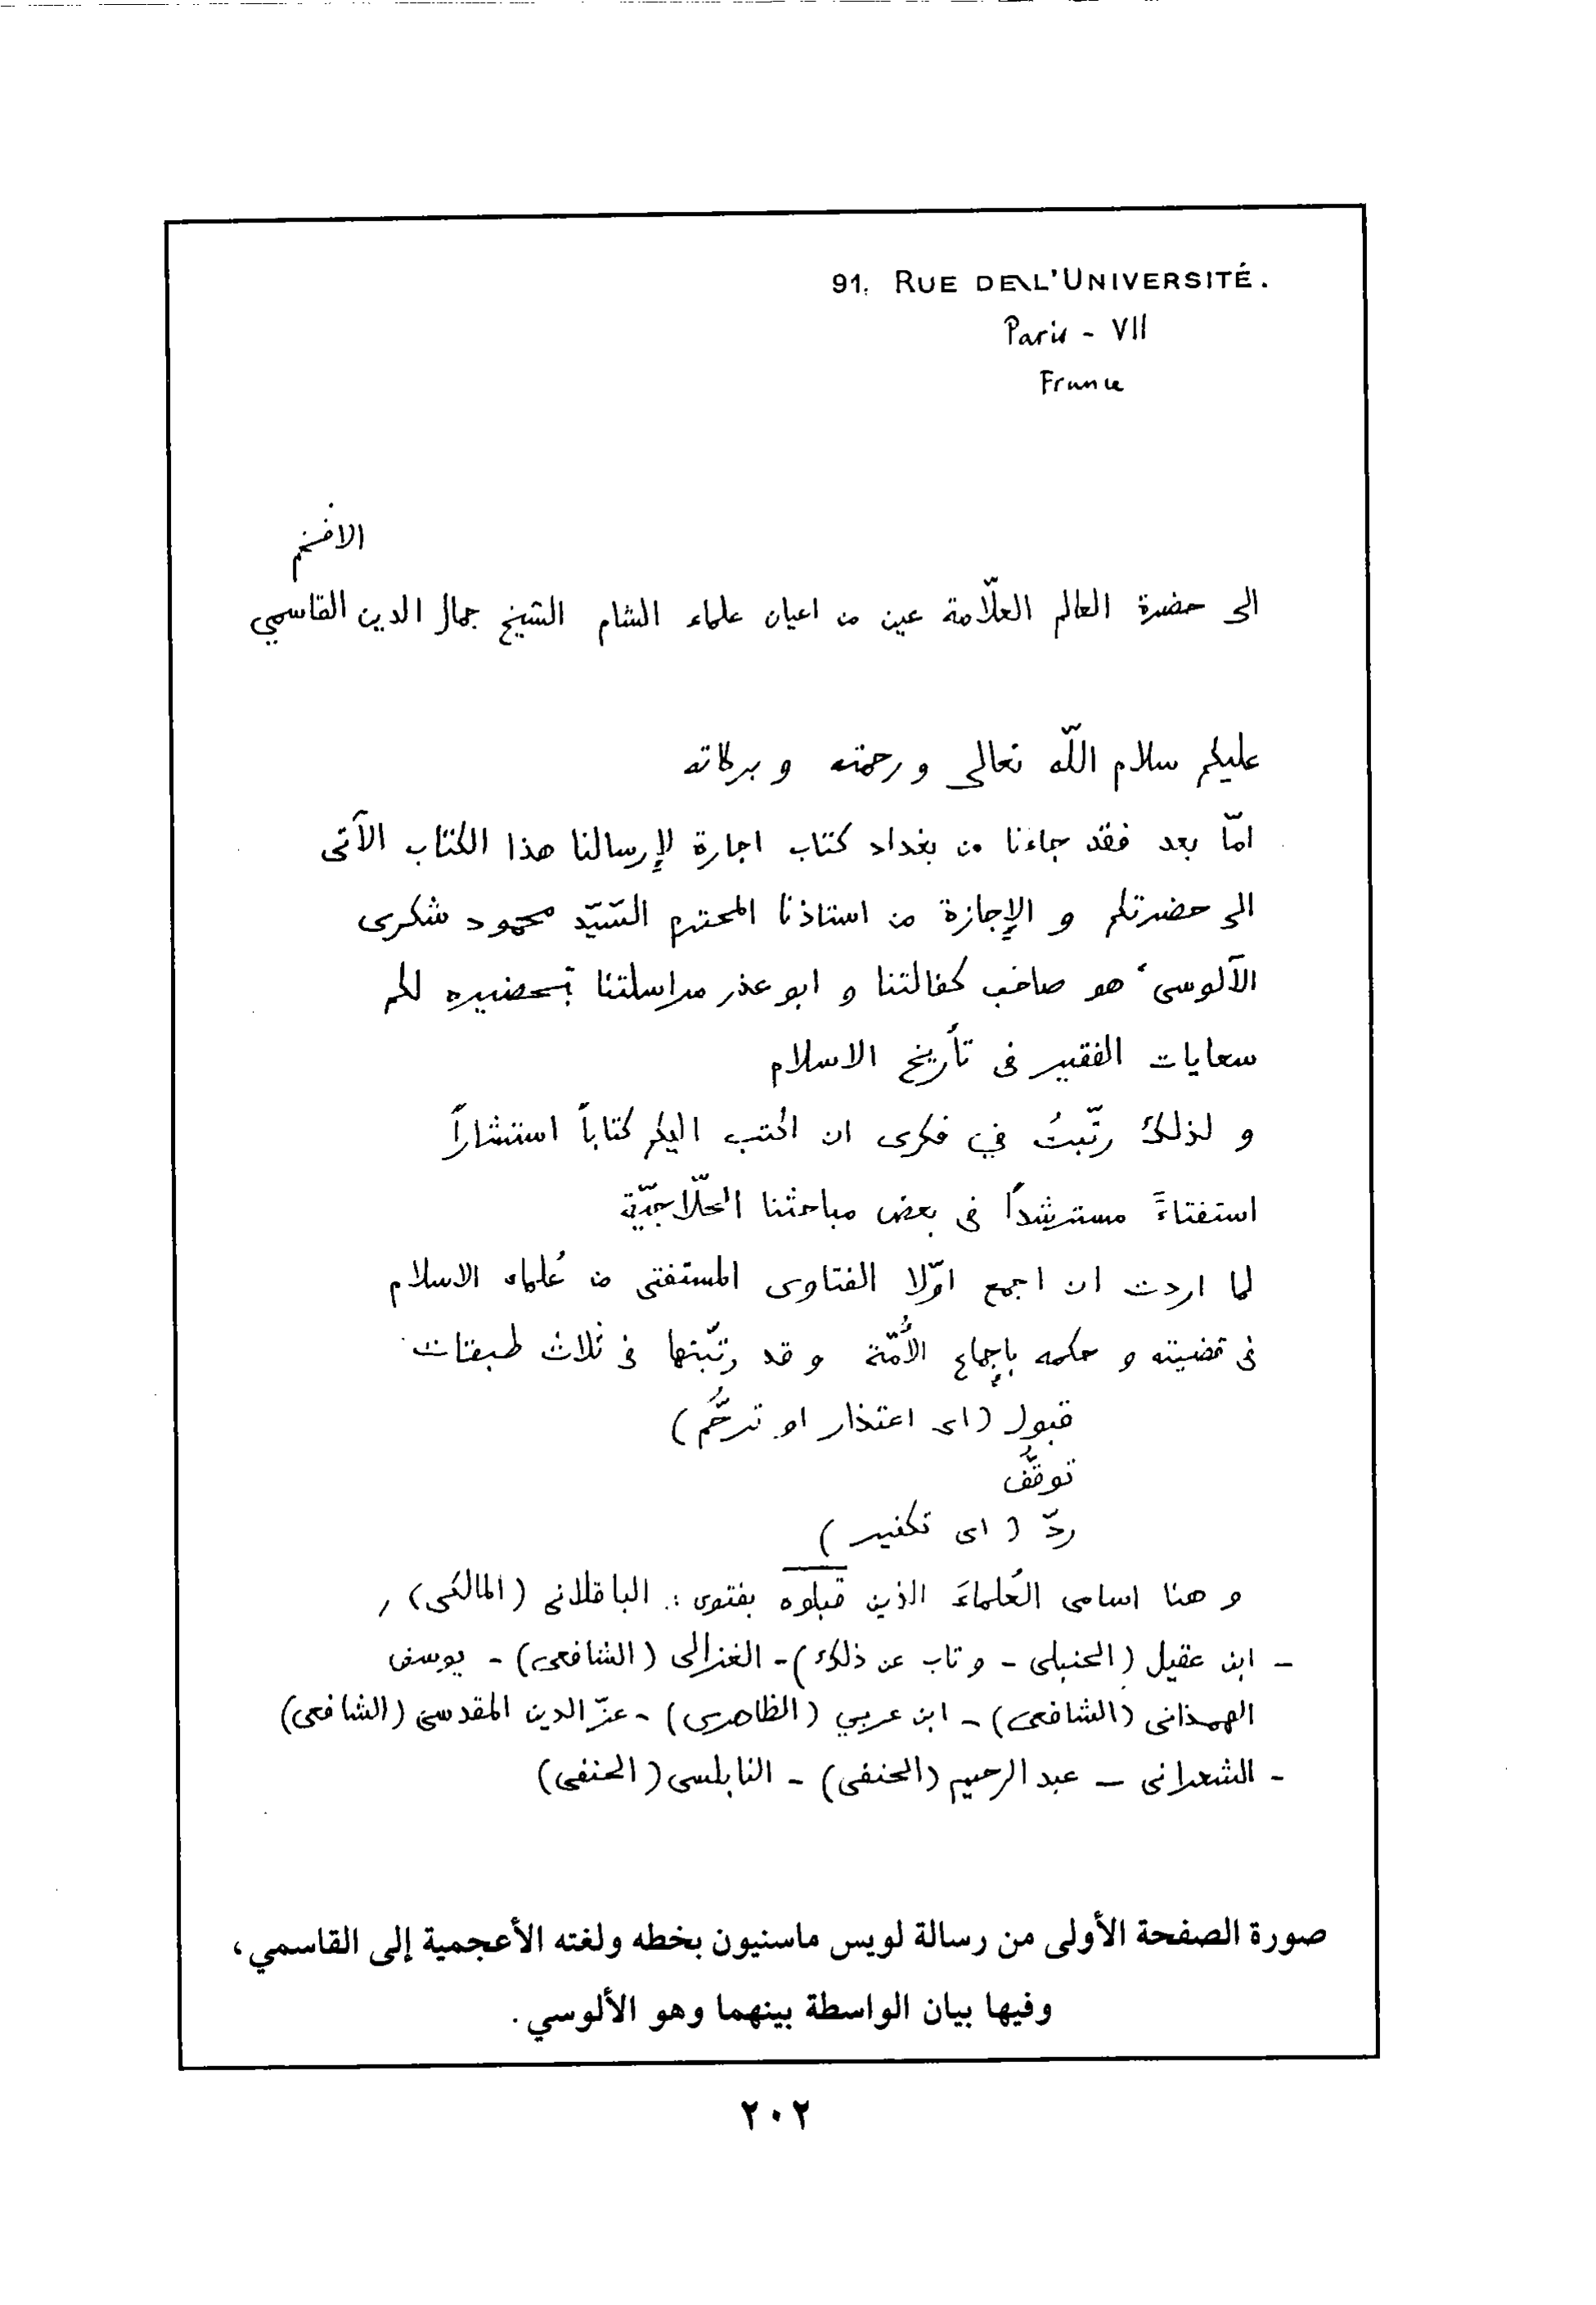 91, RUE DE L'UNIVERSITÉ.
Paris - VII
France
الافخم
الى حضرة العالم العلّامة عين من اعيان علماء الشام الشيخ جمال الدين القاسمي
عليكم سلام اللّه تعالى و رحمته و بركاته
امّا بعد فقد جاءنا من بغداد كتاب اجازة لإرسالنا هذا الكتاب الآتى
الى حضرتكم و الإجازة من استاذنا المحترم السّيّد محمود شكرى
الآلوسى، هو صاحب كفالتنا و ابو عذر مراسلتنا بتحضيره لكم
سعايات الفقير فى تأريخ الاسلام
و لذلك رتّبتُ في فكرى ان اكتب اليكم كتاباً استشاراً
استفتاءً مسترشداً فى بعض مباحثنا الحلّاجيّة
لما اردت ان اجمع اوّلا الفتاوى المستفتى من عُلماء الاسلام
فى قضيته و حكمه بإجماع الأُمّة و قد رتّبتها فى ثلاث طبقات
قبول (اى اعتذار او ترحُّم)
توقُّف
ردّ (اى تكفير)
و هنا اسامى العُلماءَ الذين قبلوه بفتوى : الباقلانى (المالكى) ,
- ابن عقيل (الحنبلى - و تاب عن ذلك) - الغزالى (الشافعى) - يوسف
الهمذانى (الشافعى) - ابن عربي (الظاهرى) - عزّ الدين المقدسى (الشافعى)
- الشعرانى - عبد الرحيم (الحنفى) - النابلسى (الحنفى)
صورة الصفحة الأولى من رسالة لويس ماسنيون بخطه ولغته الأعجمية إلى القاسمي،
وفيها بيان الواسطة بينهما وهو الألوسي.
٢٠٢